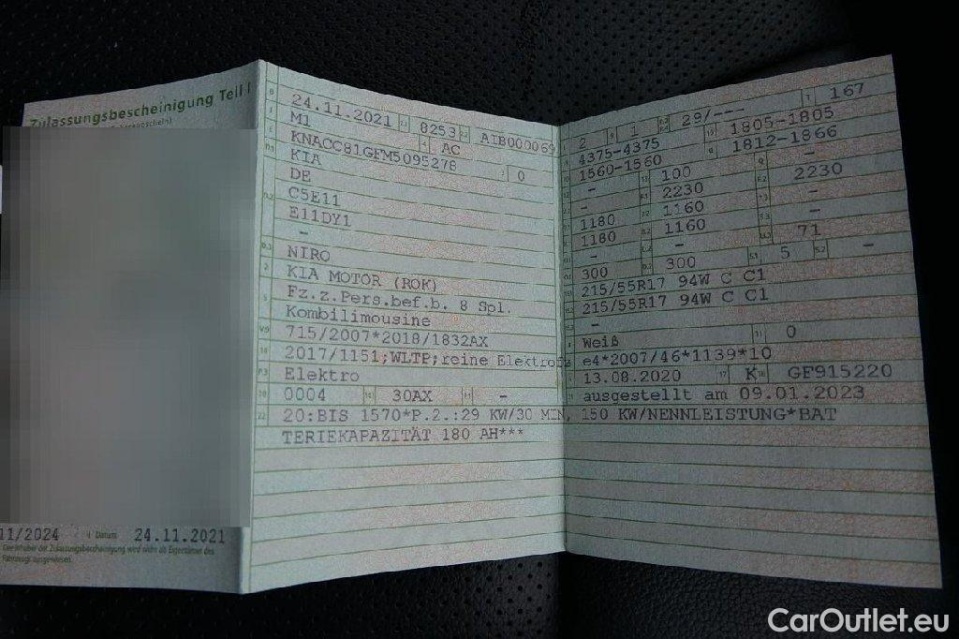 Zulassungsbescheinigung Teil I
11/2024 Datum 24.11.2021
24.11.2021 8253 AIB000069
M1 AC
KNACC81GFM5095278 0
KIA
DE
C5E11
E11DY1
-
NIRO
KIA MOTOR (ROK)
Fz.z.Pers.bef.b. 8 Spl.
Kombilimousine
715/2007*2018/1832AX
2017/1151;WLTP;reine Elektrofz
Elektro
0004 30AX -
20:BIS 1570*P.2.:29 KW/30 MIN, 150 KW/NENNLEISTUNG*BAT
TERIEKAPAZITÄT 180 AH***
2 1 29/--- 167
4375-4375 1805-1805
1560-1560 1812-1866
- 100 -
- 2230 2230
1180 1160 -
1180 1160 -
- 71
300 300 5 -
215/55R17 94W C C1
215/55R17 94W C C1
-
Weiß 0
e4*2007/46*1139*10
13.08.2020 K GF915220
ausgestellt am 09.01.2023
CarOutlet.eu